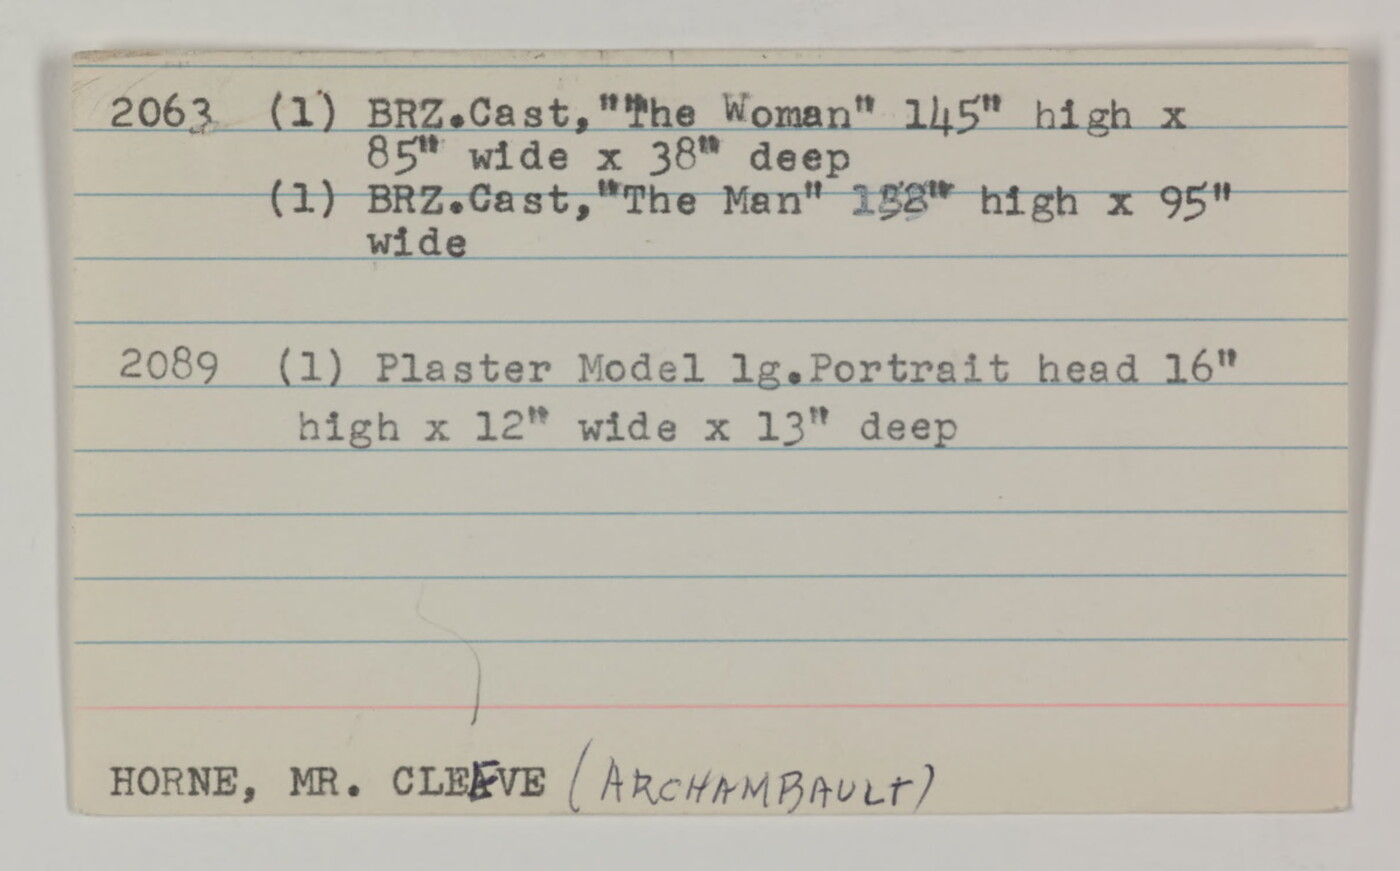 2063 (1) BRZ.Cast,""The Woman" 145" high x
85" wide x 38" deep
(1) BRZ.Cast,"The Man" high x 95"
wide
2089 (1) Plaster Model lg.Portrait head 16"
high x 12" wide x 13" deep
HORNE, MR. CLEEVE (ARCHAMBAULT)